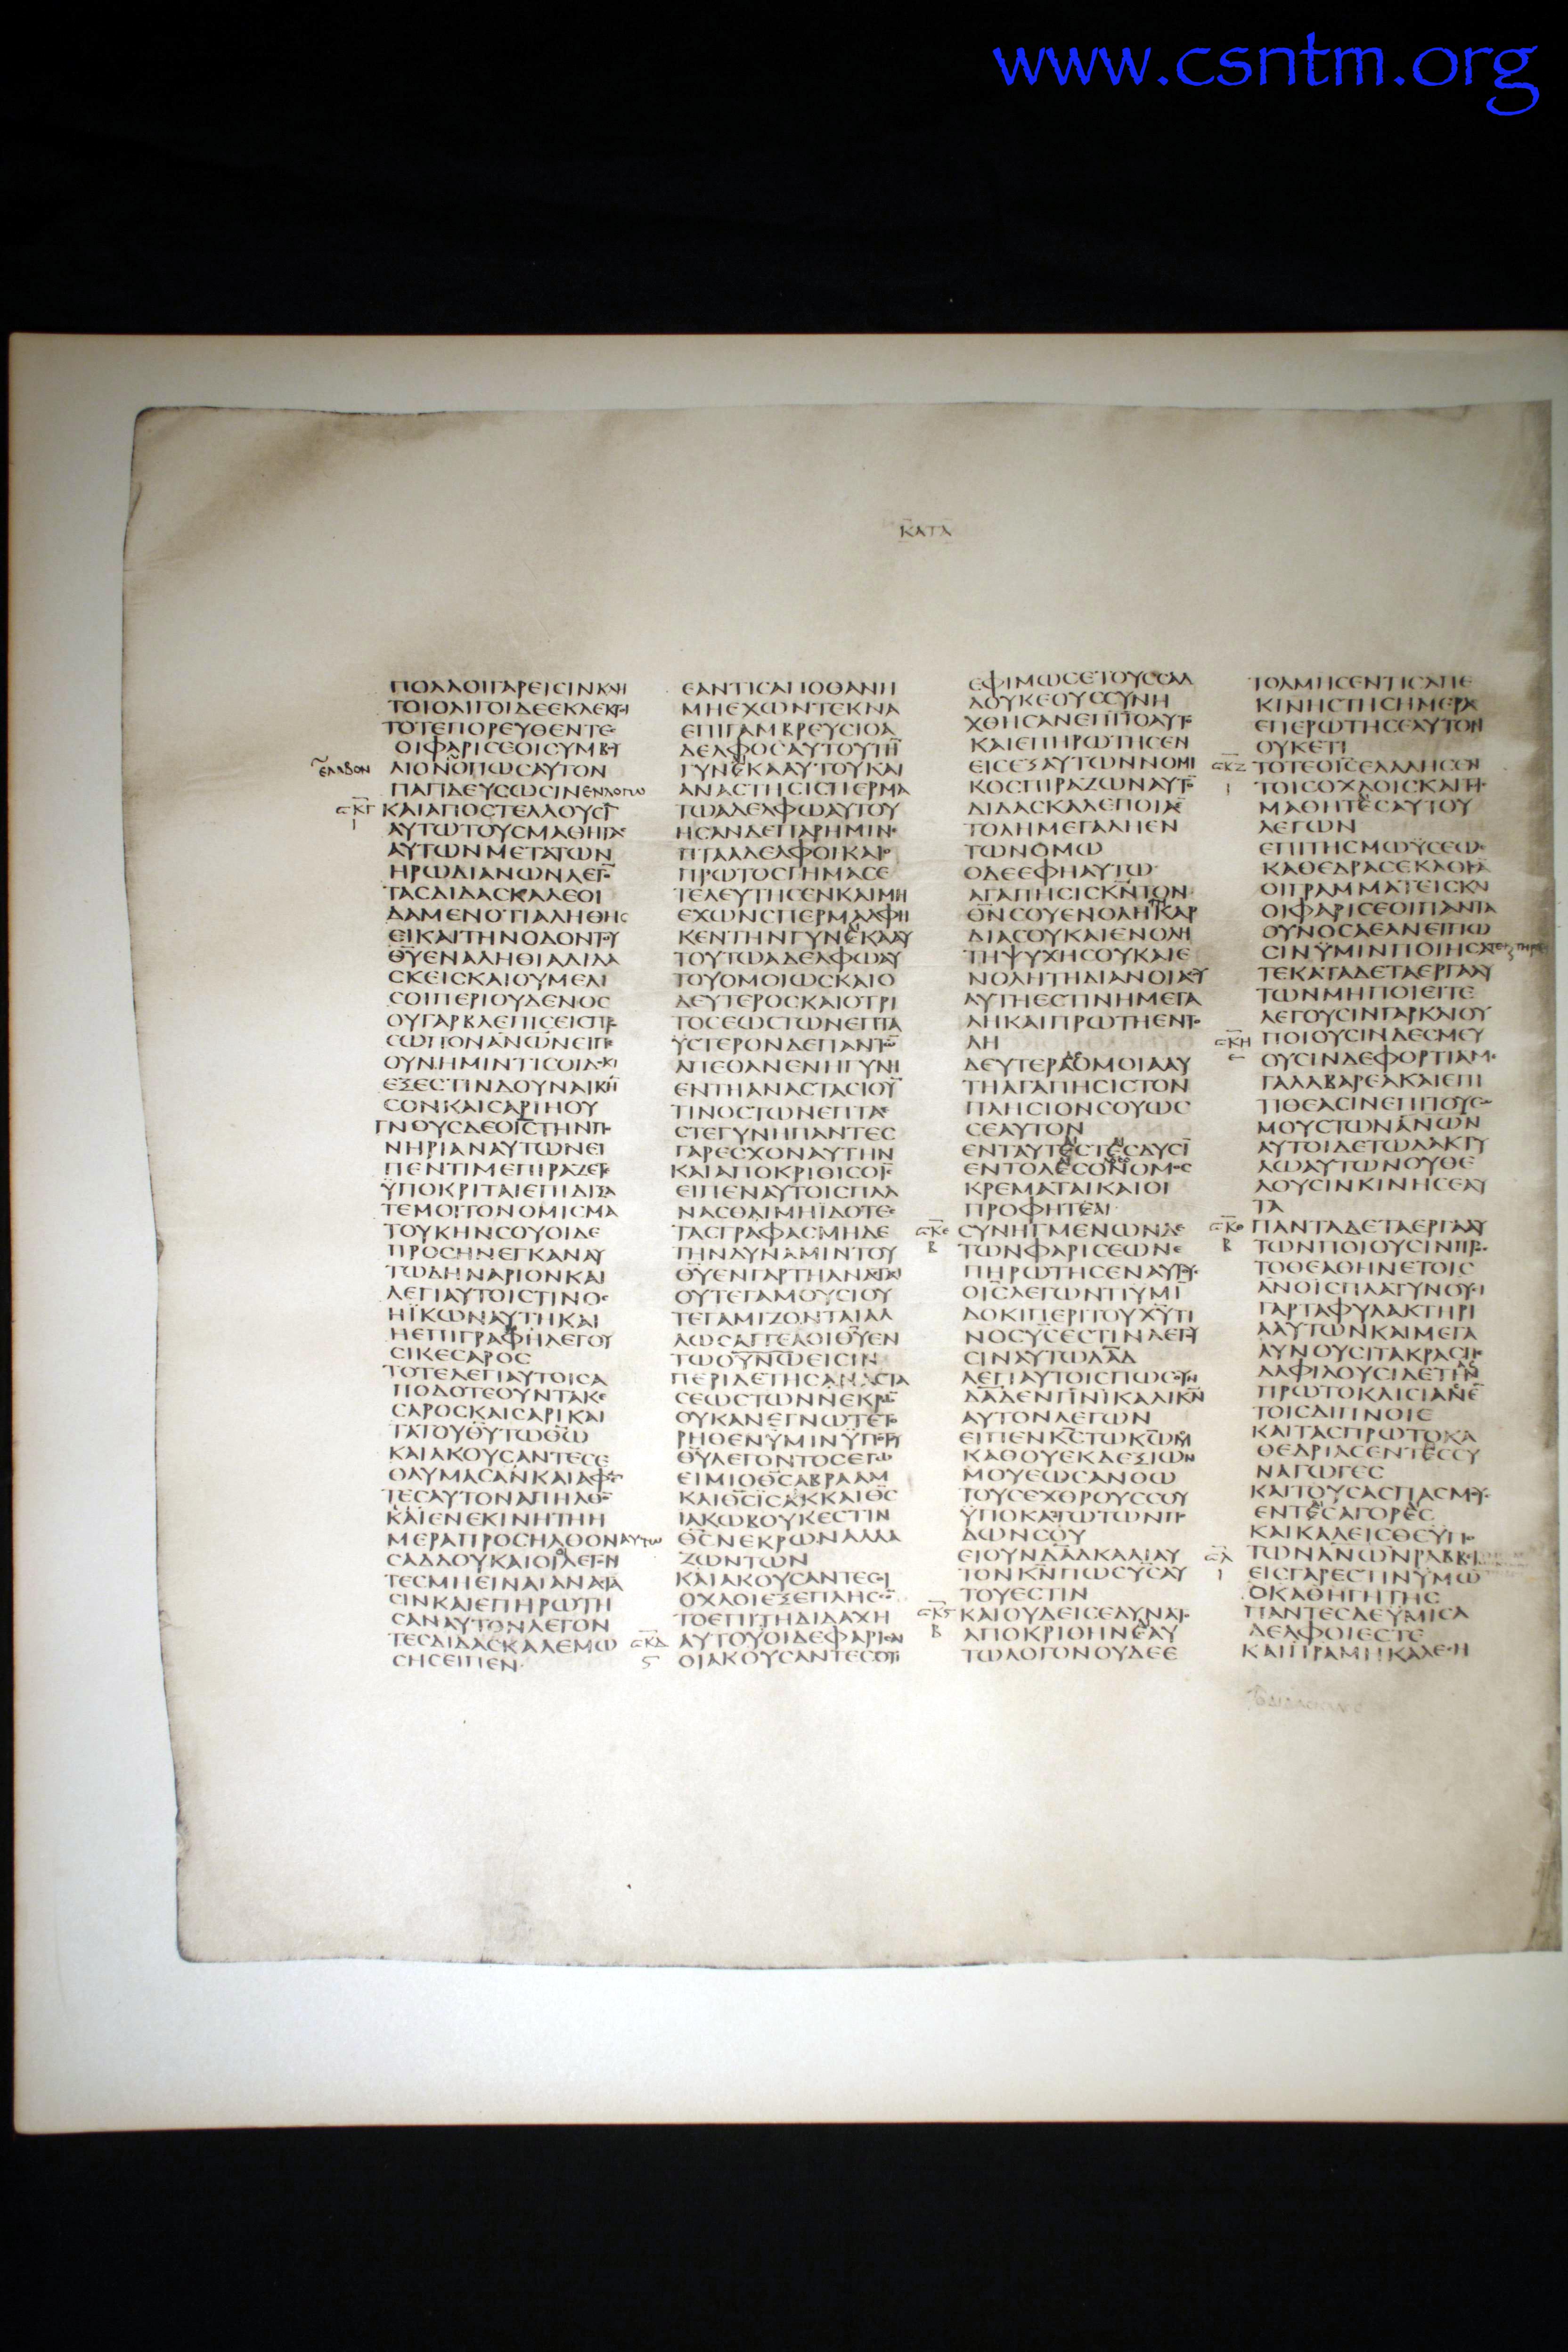 www.csntm.org
ΚΑΤΑ
ΠΟΛΛΟΙΓΑΡΕΙCΙΝΚΛΗ
ΤΟΙΟΛΙΓΟΙΔΕΕΚΛΕΚΤΟΙ
ΤΟΤΕΠΟΡΕΥΘΕΝΤΕC
ΟΙΦΑΡΙCΕΟΙCΥΜΒΥ
ΕΛΑΒΟΝ
ΛΙΟΝΟΠΩCΑΥΤΟΝ
ΠΑΓΙΔΕΥCΩCΙΝΕΝΛΟΓΩ
ΚΑΙΑΠΟCΤΕΛΛΟΥCΙ
ΑΥΤΩΤΟΥCΜΑΘΗΤΑC
ΑΥΤΩΝΜΕΤΑΤΩΝ
ΗΡΩΔΙΑΝΩΝΛΕΓ
ΤΑCΔΙΔΑCΚΑΛΕΟΙ
ΔΑΜΕΝΟΤΙΑΛΗΘΗC
ΕΙΚΑΙΤΗΝΟΔΟΝΤΟΥ
ΘΥΕΝΑΛΗΘΙΑΔΙΔΑ
CΚΕΙCΚΑΙΟΥΜΕΛΙ
CΟΙΠΕΡΙΟΥΔΕΝΟC
ΟΥΓΑΡΒΛΕΠΙCΕΙCΠΡ
CΩΠΟΝΑΝΩΝΕΙΠΕ
ΟΥΝΗΜΙΝΤΙCΟΙΔΟΚΙ
ΕΞΕCΤΙΝΔΟΥΝΑΙΚΗ
CΟΝΚΑΙCΑΡΙΗΟΥ
ΓΝΟΥCΔΕΟΙCΤΗΝΠΟ
ΝΗΡΙΑΝΑΥΤΩΝΕΙ
ΠΕΝΤΙΜΕΠΙΡΑΖΕΤΕ
ΫΠΟΚΡΙΤΑΙΕΠΙΔΙΞΑ
ΤΕΜΟΙΤΟΝΟΜΙCΜΑ
ΤΟΥΚΗΝCΟΥΟΙΔΕ
ΠΡΟCΗΝΕΓΚΑΝΑΥ
ΤΩΔΗΝΑΡΙΟΝΚΑΙ
ΛΕΓΙΑΥΤΟΙCΤΙΝΟC
ΗΪΚΩΝΑΥΤΗΚΑΙ
ΗΕΠΙΓΡΑΦΗΛΕΓΟΥ
CΙΚΕCΑΡΟC
ΤΟΤΕΛΕΓΙΑΥΤΟΙCΑ
ΠΟΔΟΤΕΟΥΝΤΑΚΕ
CΑΡΟCΚΑΙCΑΡΙΚΑΙ
ΤΑΤΟΥΘΥΤΩΘΩ
ΚΑΙΑΚΟΥCΑΝΤΕCΕ
ΘΑΥΜΑCΑΝΚΑΙΑΦΕ
ΤΕCΑΥΤΟΝΑΠΗΛΘΟ
ΚΑΙΕΝΕΚΙΝΗΤΗΗ
ΜΕΡΑΠΡΟCΗΛΘΟΝΑΥΤΩ
CΑΔΔΟΥΚΑΙΟΙΛΕΓΟΝ
ΤΕCΜΗΕΙΝΑΙΑΝΑCΤΑ
CΙΝΚΑΙΕΠΗΡΩΤΗ
CΑΝΑΥΤΟΝΛΕΓΟΝ
ΤΕCΔΙΔΑCΚΑΛΕΜΩ
CΗCΕΙΠΕΝ
ΕΑΝΤΙCΑΠΟΘΑΝΗ
ΜΗΕΧΩΝΤΕΚΝΑ
ΕΠΙΓΑΜΒΡΕΥCΙΟΑ
ΔΕΛΦΟCΑΥΤΟΥΤΗ
ΓΥΝΕΚΑΑΥΤΟΥΚΑΙ
ΑΝΑCΤΗCΙCΠΕΡΜΑ
ΤΩΑΔΕΛΦΩΑΥΤΟΥ
ΗCΑΝΔΕΠΑΡΗΜΙΝ
ΠΤΑΑΔΕΛΦΟΙΚΑΙΟ
ΠΡΩΤΟCΓΗΜΑCΕ
ΤΕΛΕΥΤΗCΕΝΚΑΙΜΗ
ΕΧΩΝCΠΕΡΜΑΑΦΗ
ΚΕΝΤΗΝΓΥΝΕΚΑΑΥ
ΤΟΥΤΩΑΔΕΛΦΩΑΥ
ΤΟΥΟΜΟΙΩCΚΑΙΟ
ΔΕΥΤΕΡΟCΚΑΙΟΤΡΙ
ΤΟCΕΩCΤΩΝΕΠΤΑ
ΫCΤΕΡΟΝΔΕΠΑΝΤΩ
ΑΠΕΘΑΝΕΝΗΓΥΝΗ
ΕΝΤΗΑΝΑCΤΑCΙΟΥ
ΤΙΝΟCΤΩΝΕΠΤΑΕ
CΤΕΓΥΝΗΠΑΝΤΕC
ΓΑΡΕCΧΟΝΑΥΤΗΝ
ΚΑΙΑΠΟΚΡΙΘΙCΟΙC
ΕΙΠΕΝΑΥΤΟΙCΠΛΑ
ΝΑCΘΑΙΜΗΪΔΟΤΕC
ΤΑCΓΡΑΦΑCΜΗΔΕ
ΤΗΝΔΥΝΑΜΙΝΤΟΥ
ΘΥΕΝΓΑΡΤΗΑΝΑCΤΑCΙ
ΟΥΤΕΓΑΜΟΥCΙΟΥ
ΤΕΓΑΜΙΖΟΝΤΑΙΑΛ
ΛΩCΑΓΓΕΛΟΙΘΥΕΝ
ΤΩΟΥΝΩΕΙCΙΝ
ΠΕΡΙΔΕΤΗCΑΝΑCΤΑ
CΕΩCΤΩΝΝΕΚΡΩ
ΟΥΚΑΝΕΓΝΩΤΕΤΟ
ΡΗΘΕΝΫΜΙΝΫΠΟΤΟΥ
ΘΥΛΕΓΟΝΤΟCΕΓΩ
ΕΙΜΙΟΘCΑΒΡΑΑΜ
ΚΑΙΘCΪCΑΚΚΑΙΘC
ΙΑΚΩΒΟΥΚΕCΤΙΝ
ΘCΝΕΚΡΩΝΑΛΛΑ
ΖΩΝΤΩΝ
ΚΑΙΑΚΟΥCΑΝΤΕCΟΙ
ΟΧΛΟΙΕΞΕΠΛΗCCΟ
ΤΟΕΠΙΤΗΔΙΔΑΧΗ
ΑΥΤΟΥΟΙΔΕΦΑΡΙCΑΙ
ΟΙΑΚΟΥCΑΝΤΕCΟΤΙ
ΕΦΙΜΩCΕΤΟΥCCΑΔ
ΔΟΥΚΕΟΥCCΥΝΗ
ΧΘΗCΑΝΕΠΙΤΟΑΥΤΟ
ΚΑΙΕΠΗΡΩΤΗCΕΝ
ΕΙCΕΞΑΥΤΩΝΝΟΜΙ
ΚΟCΠΙΡΑΖΩΝΑΥΤΟ
ΔΙΔΑCΚΑΛΕΠΟΙΑΕ
ΤΟΛΗΜΕΓΑΛΗΕΝ
ΤΩΝΟΜΩ
ΟΔΕΕΦΗΑΥΤΩ
ΑΓΑΠΗCΙCΚΝΤΟΝ
ΘΝCΟΥΕΝΟΛΗΤΗΚΑΡ
ΔΙΑCΟΥΚΑΙΕΝΟΛΗ
ΤΗΨΥΧΗCΟΥΚΑΙΕ
ΝΟΛΗΤΗΔΙΑΝΟΙΑCΟΥ
ΑΥΤΗΕCΤΙΝΗΜΕΓΑ
ΛΗΚΑΙΠΡΩΤΗΕΝΤΟ
ΛΗ
ΔΕΥΤΕΡΑΔΕΟΜΟΙΑΑΥ
ΤΗΑΓΑΠΗCΙCΤΟΝ
ΠΛΗCΙΟΝCΟΥΩC
CΕΑΥΤΟΝ
ΕΝΤΑΥΤΕCΤΕCΔΥCΙ
ΕΝΤΟΛΕCΟΝΟΜΟC
ΚΡΕΜΑΤΑΙΚΑΙΟΙ
ΠΡΟΦΗΤΕ
CΥΝΗΓΜΕΝΩΝΔΕ
ΤΩΝΦΑΡΙCΕΩΝΕ
ΠΗΡΩΤΗCΕΝΑΥΤΟΥC
ΟΙCΛΕΓΩΝΤΙΥΜΙ
ΔΟΚΙΠΕΡΙΤΟΥΧΥΤΙ
ΝΟCΥCΕCΤΙΝΛΕΓΟΥ
CΙΝΑΥΤΩΔΑΔ
ΛΕΓΙΑΥΤΟΙCΠΩCΟΥΝ
ΔΑΔΕΝΠΝΙΚΑΛΙΚΝ
ΑΥΤΟΝΛΕΓΩΝ
ΕΙΠΕΝΚCΤΩΚΩΜΟΥ
ΚΑΘΟΥΕΚΔΕΞΙΩΝ
ΜΟΥΕΩCΑΝΘΩ
ΤΟΥCΕΧΘΡΟΥCCΟΥ
ΫΠΟΚΑΤΩΤΩΝΠΟ
ΔΩΝCΟΥ
ΕΙΟΥΝΔΑΔΚΑΛΙΑΥ
ΤΟΝΚΝΠΩCΥCΑΥ
ΤΟΥΕCΤΙΝ
ΚΑΙΟΥΔΕΙCΕΔΥΝΑΤΟ
ΑΠΟΚΡΙΘΗΝΕΑΥ
ΤΩΛΟΓΟΝΟΥΔΕΕ
ΤΟΛΜΗCΕΝΤΙCΑΠΕ
ΚΙΝΗCΤΗCΗΜΕΡΑ
ΕΠΕΡΩΤΗCΕΑΥΤΟΝ
ΟΥΚΕΤΙ
ΤΟΤΕΟΙCΕΛΑΛΗCΕΝ
ΤΟΙCΟΧΛΟΙCΚΑΙΤΟΙ
ΜΑΘΗΤΕCΑΥΤΟΥ
ΛΕΓΩΝ
ΕΠΙΤΗCΜΩΫCΕΩC
ΚΑΘΕΔΡΑCΕΚΑΘΙCΑ
ΟΙΓΡΑΜΜΑΤΕΙCΚΑΙ
ΟΙΦΑΡΙCΕΟΙΠΑΝΤΑ
ΟΥΝΟCΑΕΑΝΕΙΠΩ
CΙΝΫΜΙΝΠΟΙΗCΑ
ΤΕΚΑΤΑΔΕΤΑΕΡΓΑΑΥ
ΤΩΝΜΗΠΟΙΕΙΤΕ
ΛΕΓΟΥCΙΝΓΑΡΚΑΙΟΥ
ΠΟΙΟΥCΙΝΔΕCΜΕΥ
ΟΥCΙΝΔΕΦΟΡΤΙΑΜΕ
ΓΑΛΑΒΑΡΕΑΚΑΙΕΠΙ
ΤΙΘΕΑCΙΝΕΠΙΤΟΥCΩ
ΜΟΥCΤΩΝΑΝΩΝ
ΑΥΤΟΙΔΕΤΩΔΑΚΤΥ
ΛΩΑΥΤΩΝΟΥΘΕ
ΛΟΥCΙΝΚΙΝΗCΕΑΥ
ΤΑ
ΠΑΝΤΑΔΕΤΑΕΡΓΑΑΥ
ΤΩΝΠΟΙΟΥCΙΝΠΡΟ
ΤΟΘΕΑΘΗΝΕΤΟΙC
ΑΝΟΙCΠΛΑΤΥΝΟΥCΙ
ΓΑΡΤΑΦΥΛΑΚΤΗΡΙ
ΑΑΥΤΩΝΚΑΙΜΕΓΑ
ΛΥΝΟΥCΙΤΑΚΡΑCΠΕ
ΔΑΦΙΛΟΥCΙΔΕΤΗΝ
ΠΡΩΤΟΚΛΙCΙΑΝΕ
ΤΟΙCΔΙΠΝΟΙC
ΚΑΙΤΑCΠΡΩΤΟΚΑ
ΘΕΔΡΙΑCΕΝΤΕCCΥ
ΝΑΓΩΓΕC
ΚΑΙΤΟΥCΑCΠΑCΜΟΥC
ΕΝΤΕCΑΓΟΡΕC
ΚΑΙΚΑΛΕΙCΘΕΫΠΟ
ΤΩΝΑΝΩΝΡΑΒΒΙ
ΕΙCΓΑΡΕCΤΙΝΥΜΩ
ΟΚΑΘΗΓΗΤΗC
ΠΑΝΤΕCΔΕΫΜΙCΑ
ΔΕΛΦΟΙΕCΤΕ
ΚΑΙΠΡΑΜΗΚΑΛΕCΗ